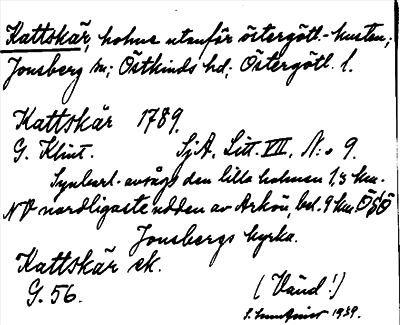 Kattskär, holme utanför östergötl. kusten;
Jonsberg sn; Östkinds hd; Östergötl. l.
Kattskär 1789.
G. Klint. SjA. Litt. VII. N:o 9.
Synbarl. avvägs den lilla holmen 1,3 km.
NV nordligaste udden av Arkö, bel. 9 km ÖSÖ
Jonsbergs kyrka.
Kattskär ek.
G. 56. (Vänd!)
1939.